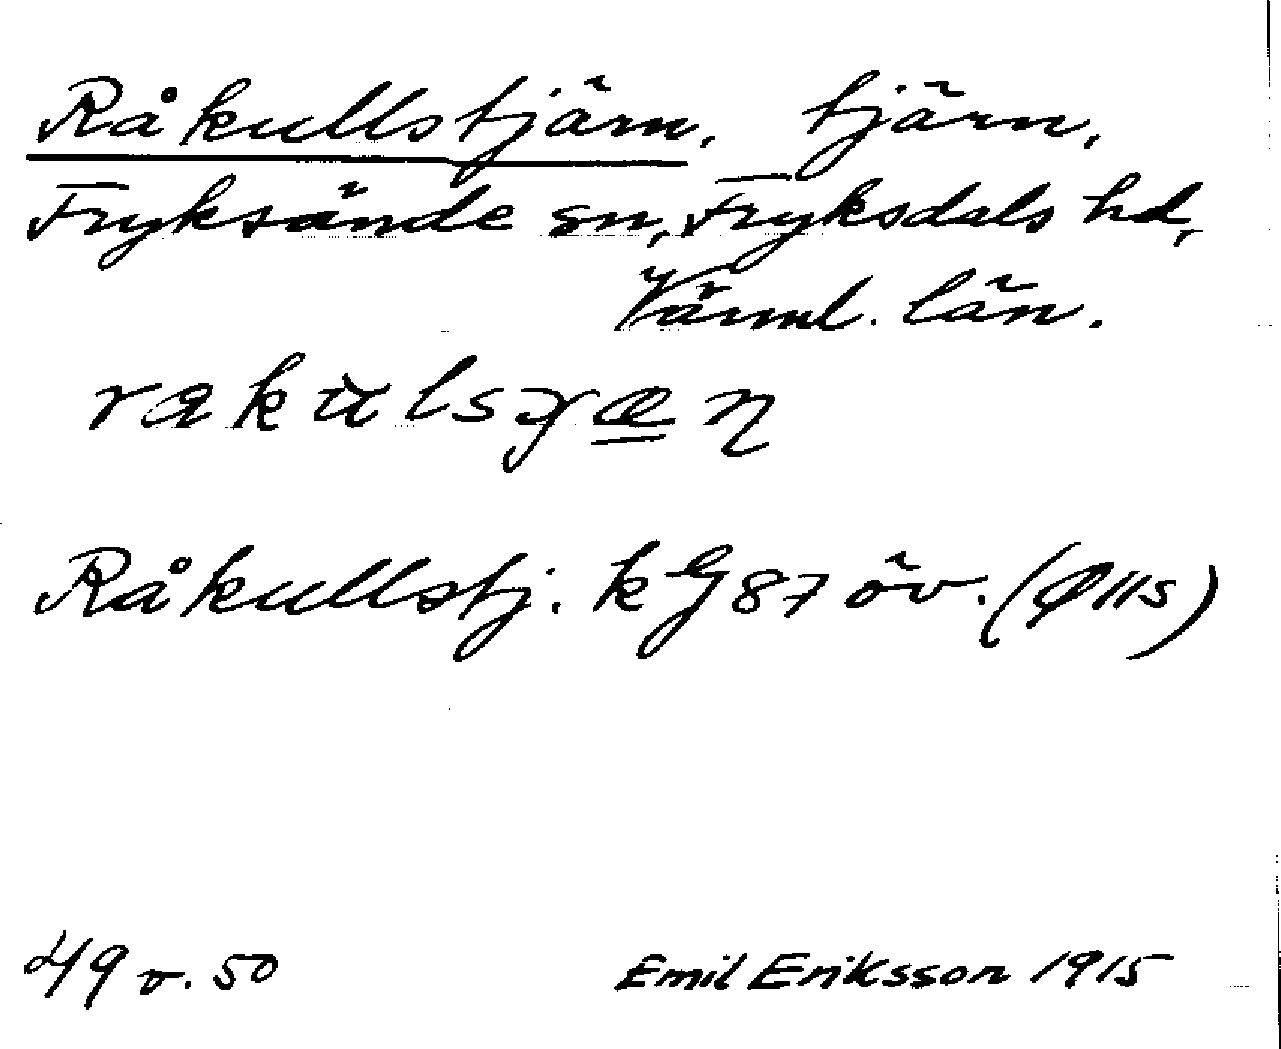 Råkullstjärn. tjärn,
Fryksände sn, Fryksdals hd,
Värml. län.
Råkullstj. k G 87 öv. (Ø 11s)
49 v. 50
Emil Eriksson 1915